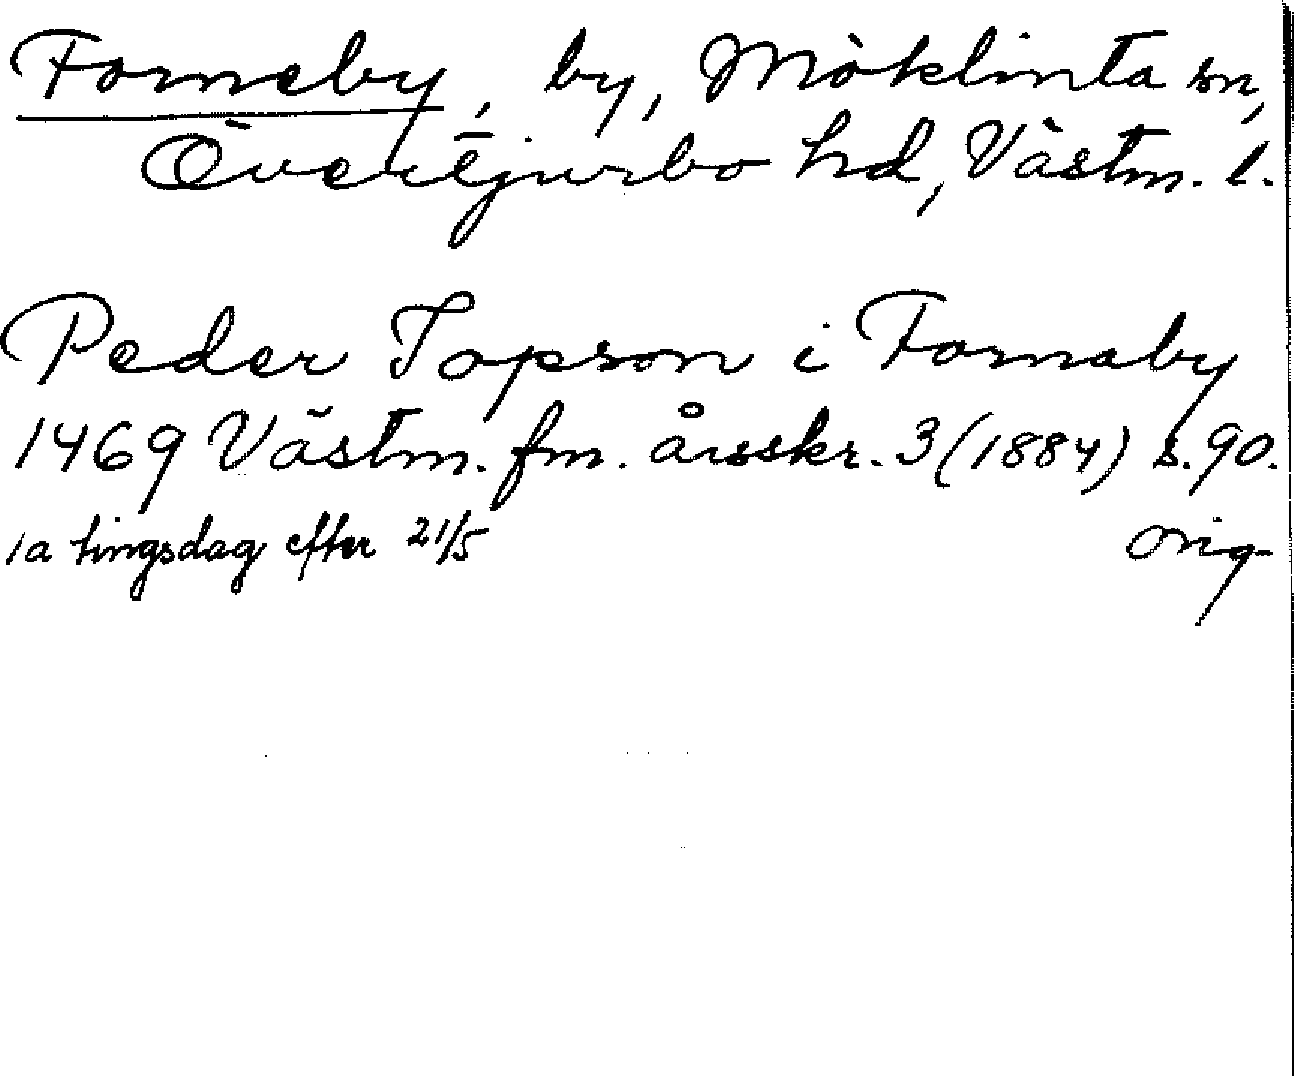 Forneby, by, Möklinta sn,
Övertjurbo hd, Västm. l.
Peder Topson i Fornaby
1469 Västm. fm. årsskr. 3 (1884) s. 90.
1a tingsdag efter 21/5 orig